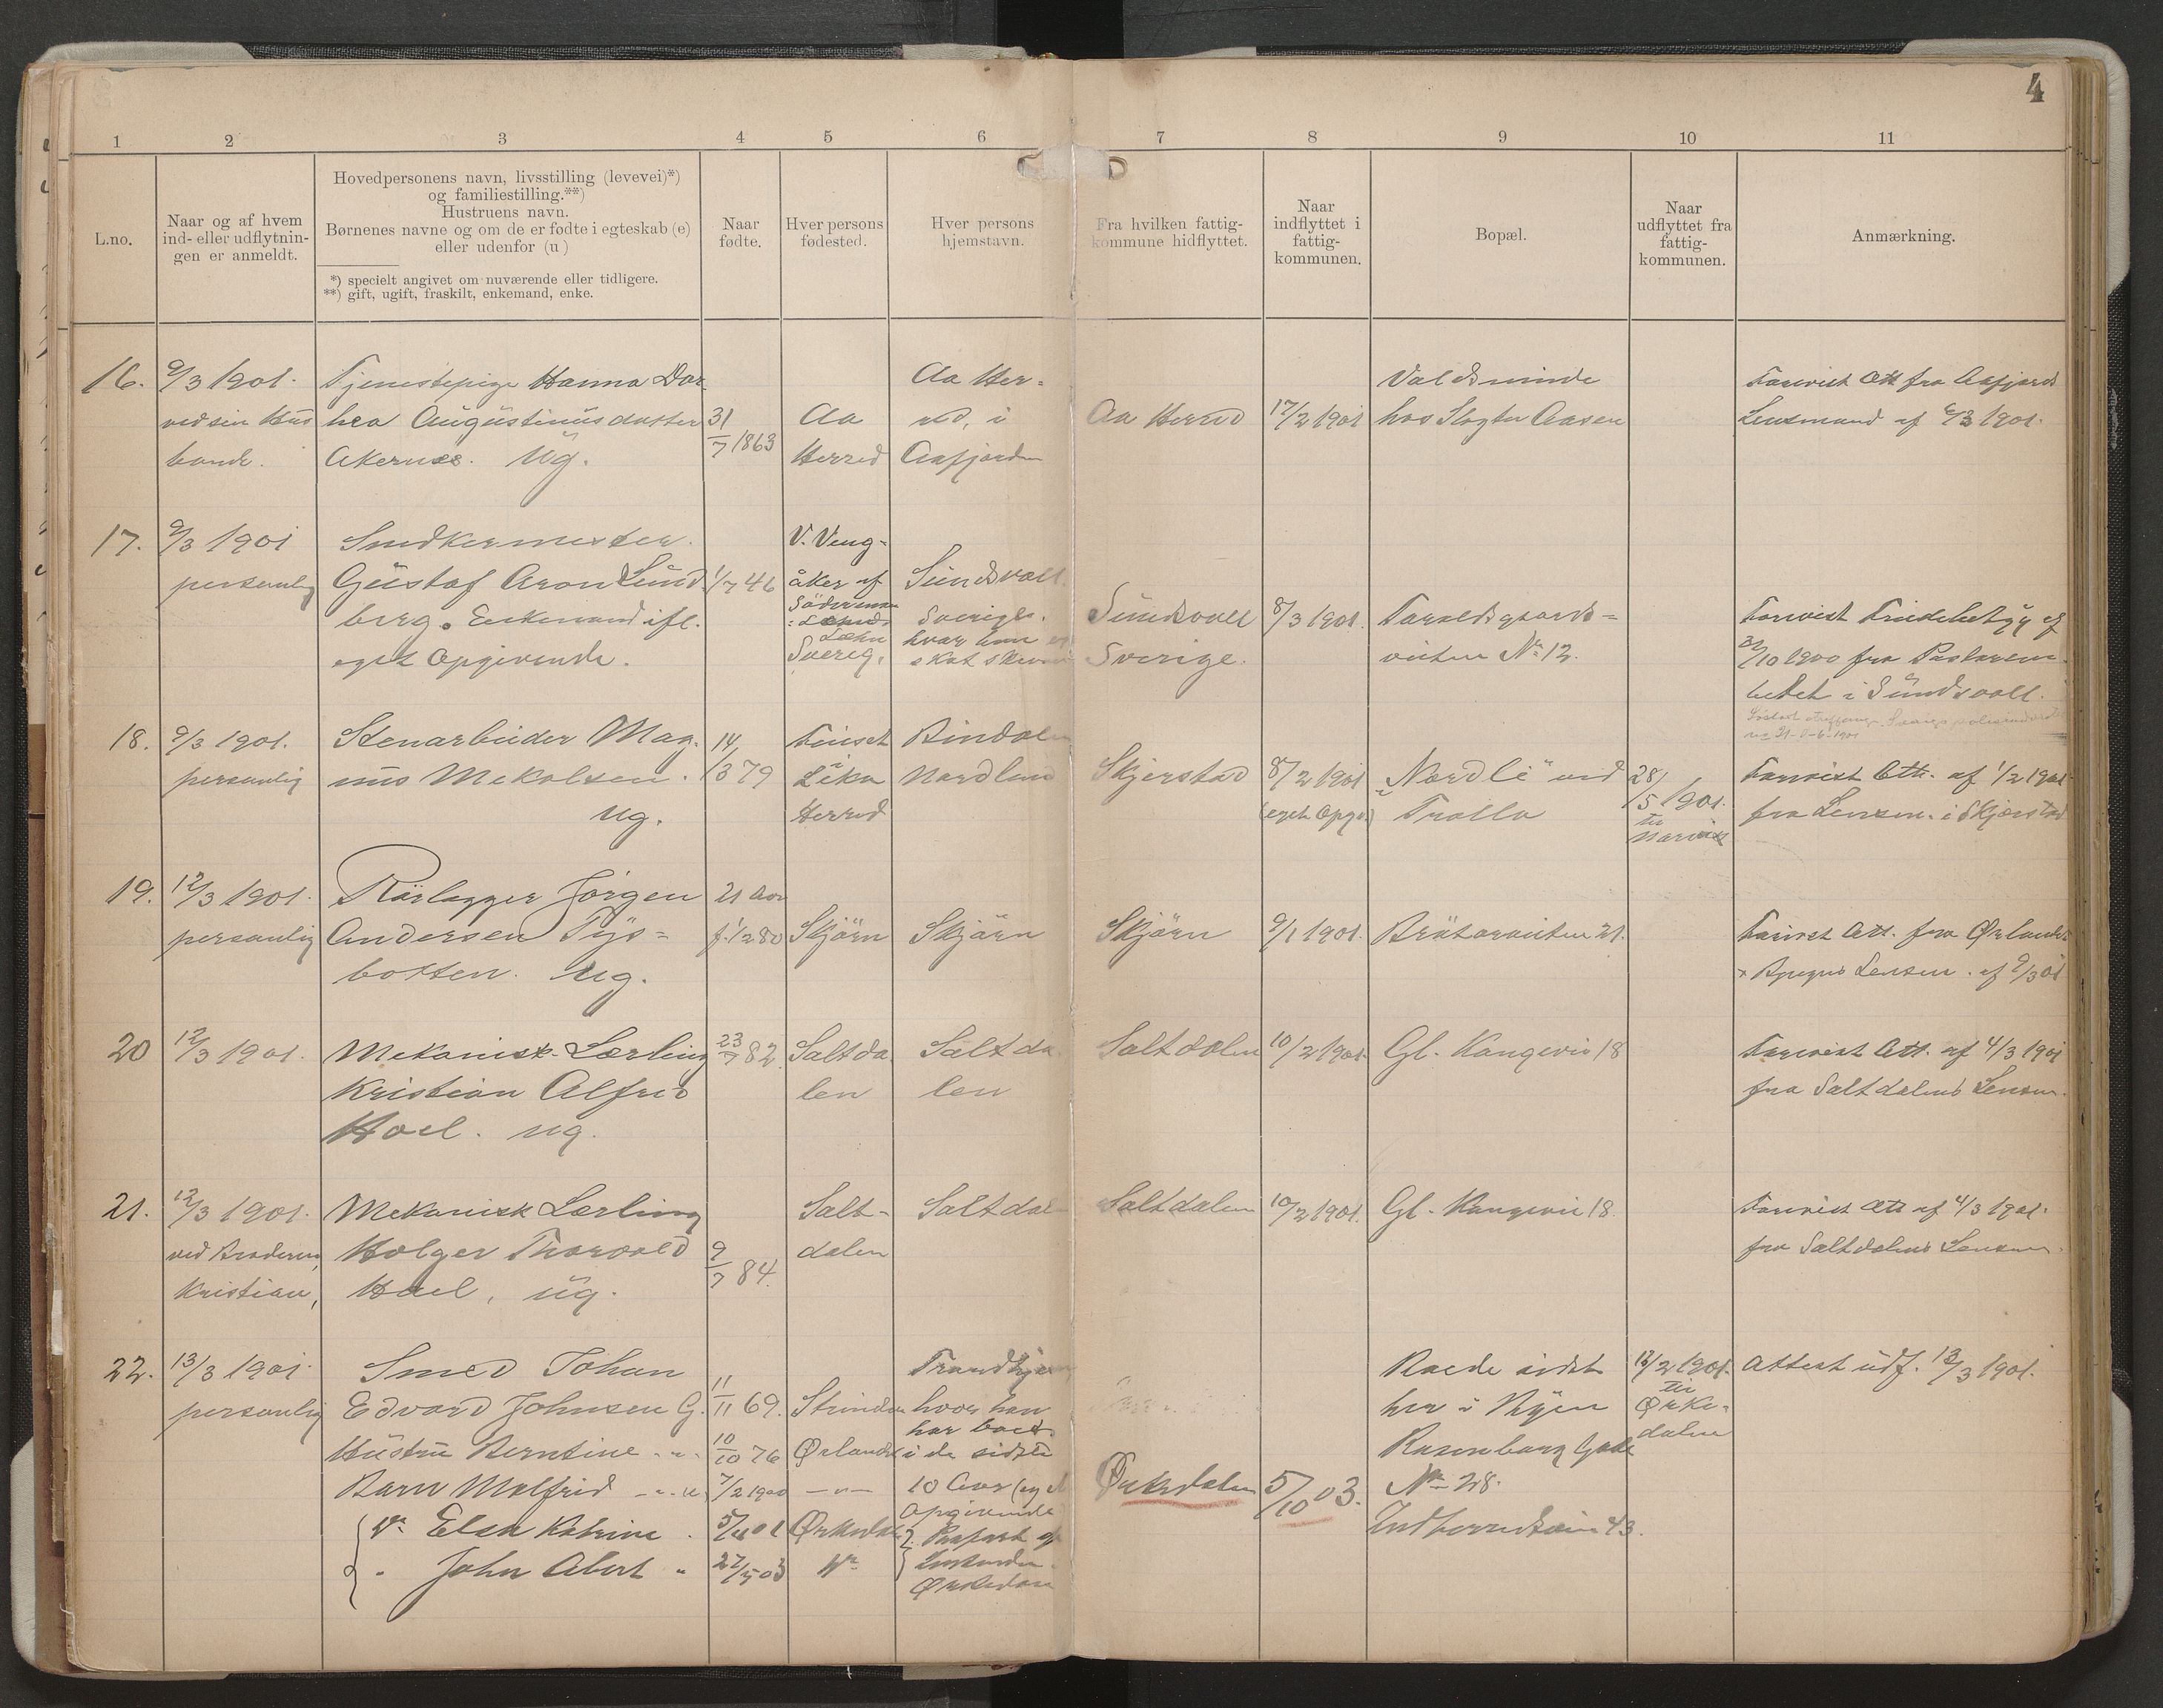 4
1 2 3 4 5 6 7 8 9 10 11
L.no.
Naar og af hvem
ind- eller udflytnin-
gen er anmeldt.
Hovedpersonens navn, livsstilling (levevei)*)
og familiestilling.**)
Hustruens navn.
Børnenes navne og om de er fødte i egteskab (e)
eller udenfor (u)
*) specielt angivet om nuværende eller tidligere.
**) gift, ugift, fraskilt, enkemand, enke.
Naar
fødte.
Hver persons
fødested.
Hver persons
hjemstavn.
Fra hvilken fattig-
kommune hidflyttet.
Naar
indflyttet i
fattig-
kommunen.
Bopæl.
Naar
udflyttet fra
fattig-
kommunen.
Anmærkning.
16.
9/3 1901.
ved sin Hus
bond.
Tjenestepige Hanna Dor
hea Augustinusdatter
Akernes. Ug.
31/7 1863
Aa
Herred
Aa Her-
red, i
Aafjorden
Aa Herred
17/2 1901
Valdsminde
hos Slagter Aasen
Forevist Att fra Aafjords
Lensmand af 6/3 1901.
17.
9/3 1901
personlig
Snedkermester
Gustaf Aron Lund
berg. Enkemand ifl.
eget Opgivende.
1/7 46
V. Veng-
åker af
Söderman
Læhn
Sverig.
Sundsvall
Sverige.
hvor han er
skatskreven
Sundsvall
Sverige.
8/3 1901.
Taraldsgaards-
veiten No 12.
Forevist Frideletyg af
/10 1900 fra Pastorem-
betet i Sundsvall.
18.
9/3 1901.
personlig
Stenarbeider Mag-
nus Mekalsen.
ug.
14/3 79
i
Leka
Herred
Bindalen
Nordland
Skjerstad
8/2 1901
(eget Opgv.)
"Nordli" ved
Trolla
28/5 1901.
til
Narvik
Forevist Att. af 1/2 1901
fra Lensm. i Skjærstad
19.
12/3 1901.
personlig
Rörlægger Jörgen
Andersen Tys-
botten. Ug.
21 Aar
f. 1/2 80
Skjörn
Skjörn
Skjörn
9/1 1901.
Brötarveiten 21.
Forevist Att. fra Ørlandets
+ Bjugns Lensm. af 9/3 01
20
12/3 1901.
Mekanisk Lærling
Kristian Alfred
Hoel. ug.
23/7 82
Saltda
len
Saltda
len
Saltdalen
10/2 1901.
Gl. Kongevei 18
Forevist Att. af 4/3 1901
fra Saltdalens Lensm.
21.
12/3 1901.
ved Broderen
Kristian,
Mekanisk Lærling
Holger Thorvald
Hoel, ug.
9/7 84.
Salt-
dalen
Saltdalen
Saltdalen
10/2 1901.
Gl. Kongevei 18.
Forevist Att af 4/3 1901.
fra Saltdalens Lensm.
22.
13/3 1901.
personlig
Smed Johan
Edvard Johnsen G.
Hustru Berntine - " -
Barn Malfrid - " - u
Do Elen Katrine "
" John Albert "
11/11 69.
10/10 76
7/2 1900
5/4 01
27/5 03
Strinden
Ørlandet
- " -
Ørkedalen
Do
Trondhjem
hvor han
har boet
i de sidste
10 Aar (eget
Opgivende)
Ørkedalen
Ørkedalen
5/10 03.
Boede sidst
her i Byen
Rosenborg Gade
No 28.
Indherredsvei 43.
12/2 1901.
til
Ørke-
dalen
Attest udf. 13/3 1901.